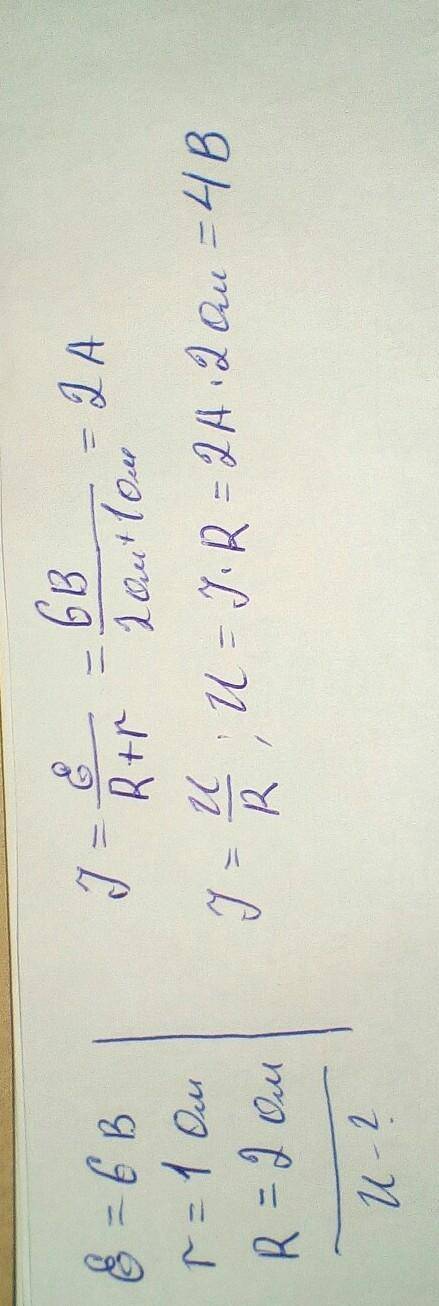 ℰ = 6 В
r = 1 Ом
R = 2 Ом
U - ?
J = ℰ / (R + r) = 6В / (2 Ом + 1 Ом) = 2 А
J = U / R ; U = J · R = 2А · 2 Ом = 4 В